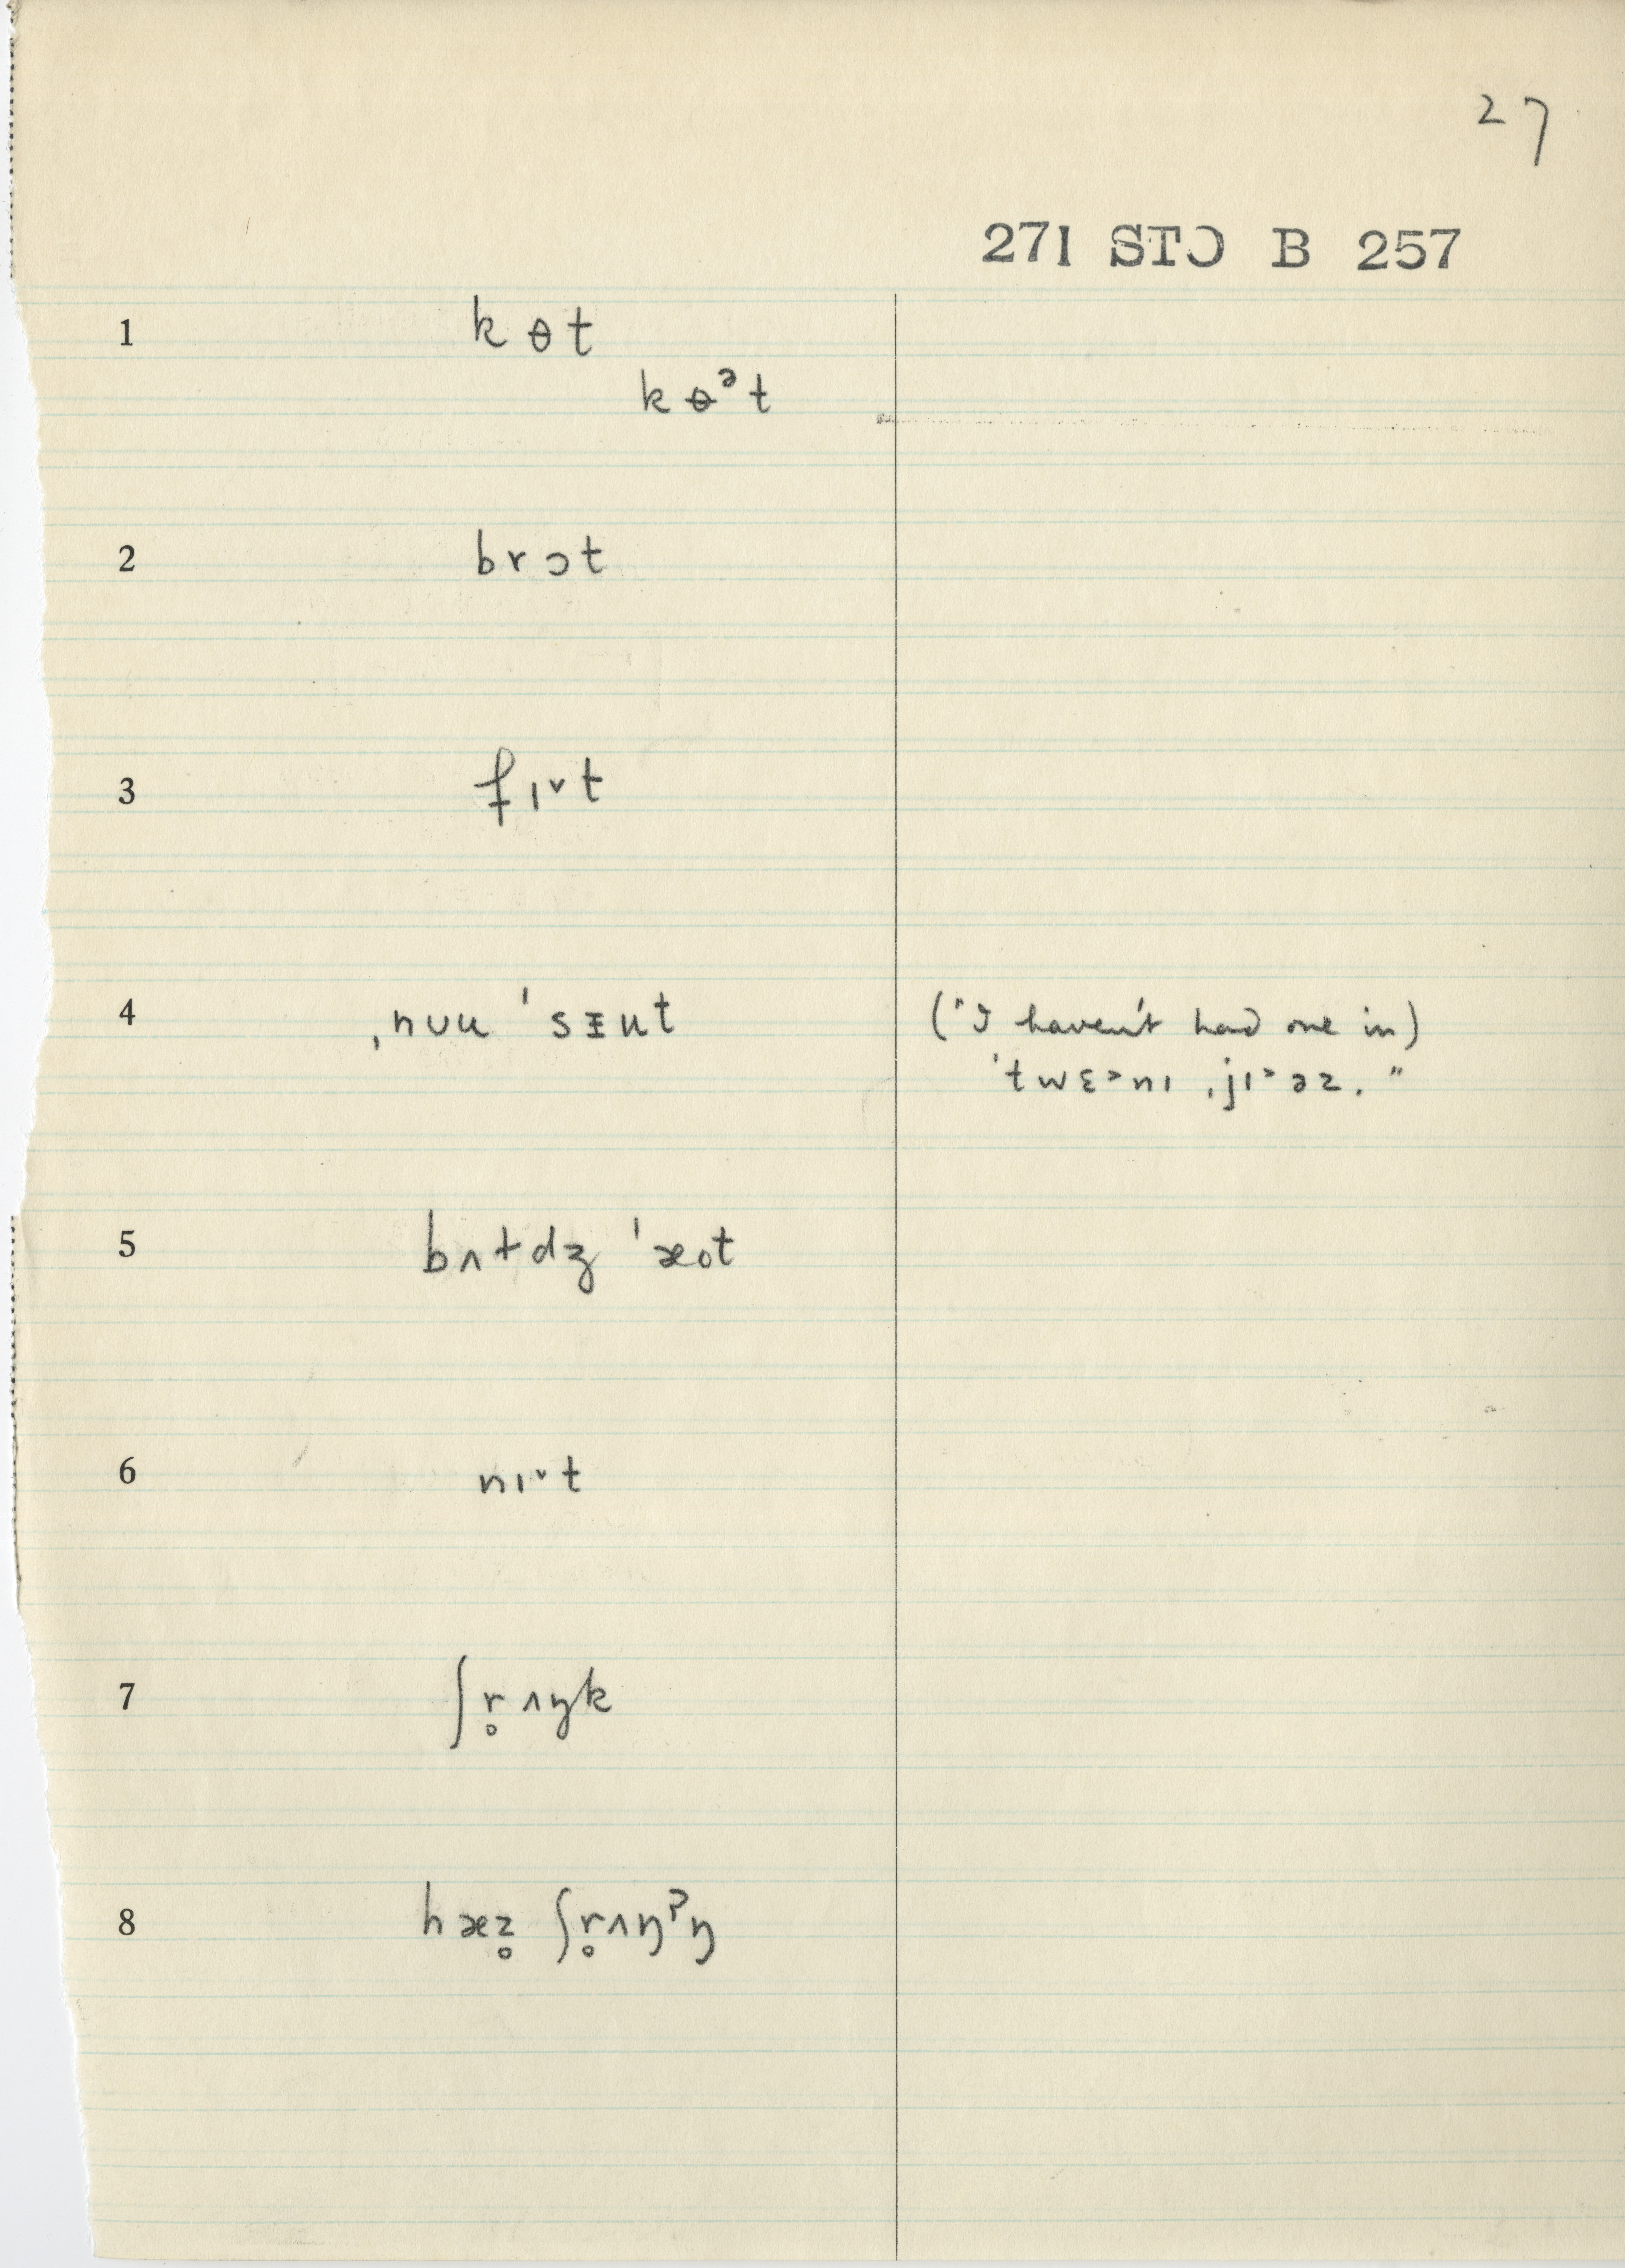 27
271 STƆ B 257
1 kɵt
kɵᵊt
2 brɔt
3 fɪ˅t
4 ˌnʊu ˈsɪut ("I haven't had one in)
ˈtwɛ˃nɪ ˌjɪ˃əz."
5 bʌɫdʒ ˈæot
6 nɪ˅t
7 ʃr̥ʌŋk
8 hæz̥ ʃr̥ʌŋˀŋ